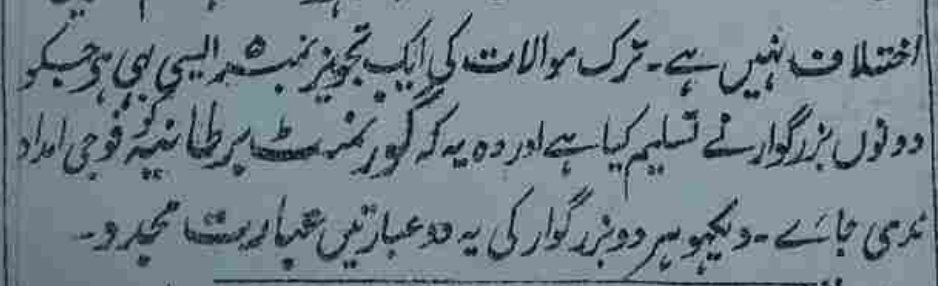 اختلاف نہیں ہے۔ ترک موالات کی ایک تجویز نمبر ۵ ایسی بہی ہی جسکو
دونوں بزرگوار نے تسلیم کیا ہے اور وہ یہ کہ گورنمنٹ برطانیہ کو فوجی امداد
ندی جائے۔ دیکھو ہر دو بزرگوار کی یہ دو عبارتیں عبارت مجدد۔